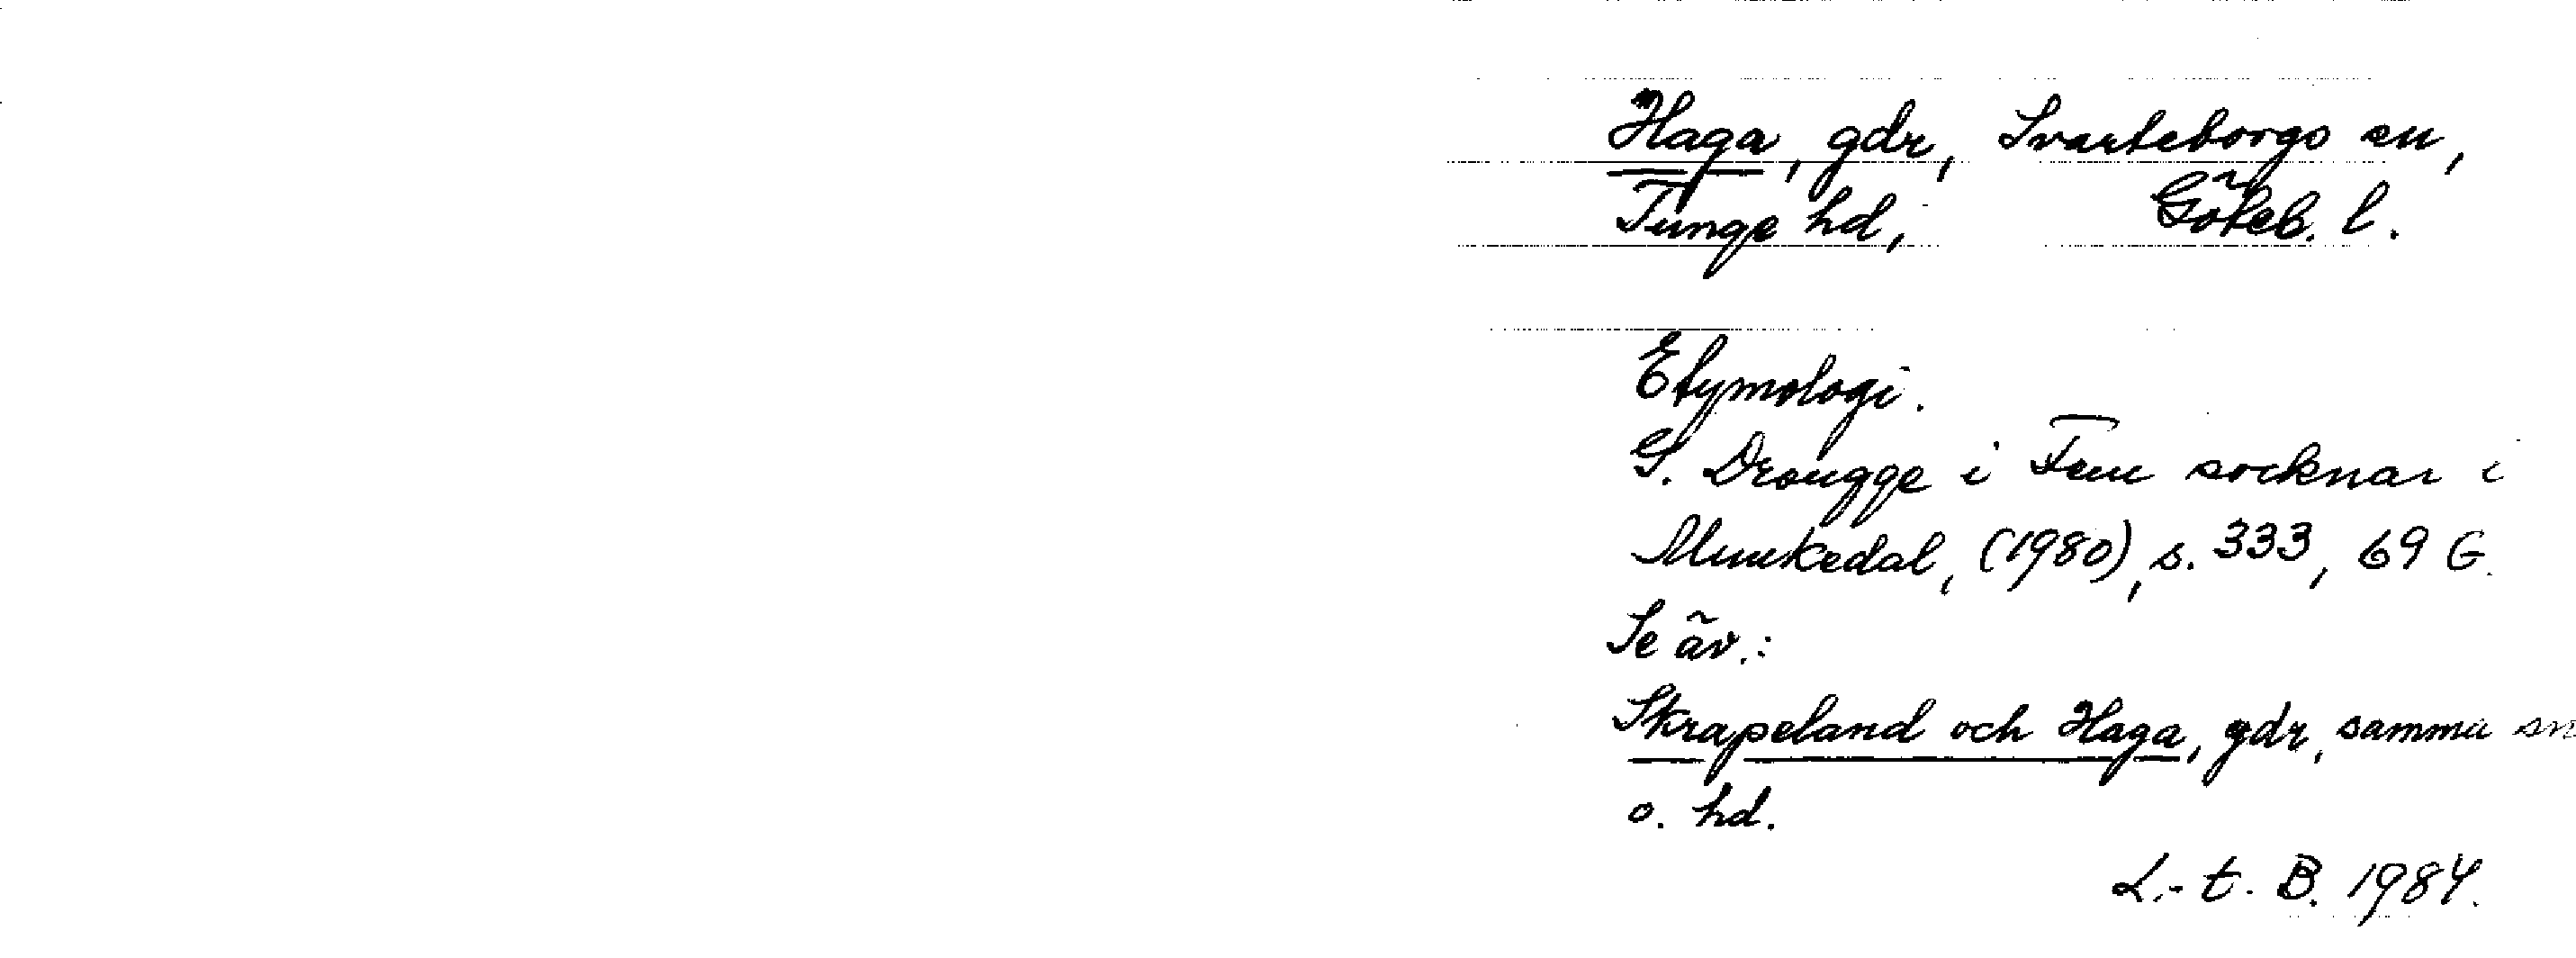 Haga, gdr, Svarteborgs sn,
Tunge hd, Göteb. l.
Etymologi.
G. Drougge i Fem socknar i
Munkedal, (1980), s. 333, 69 G.
Se äv.:
Skrapeland och Haga, gdr, samma sn
o. hd.
L.-t. B. 1984.